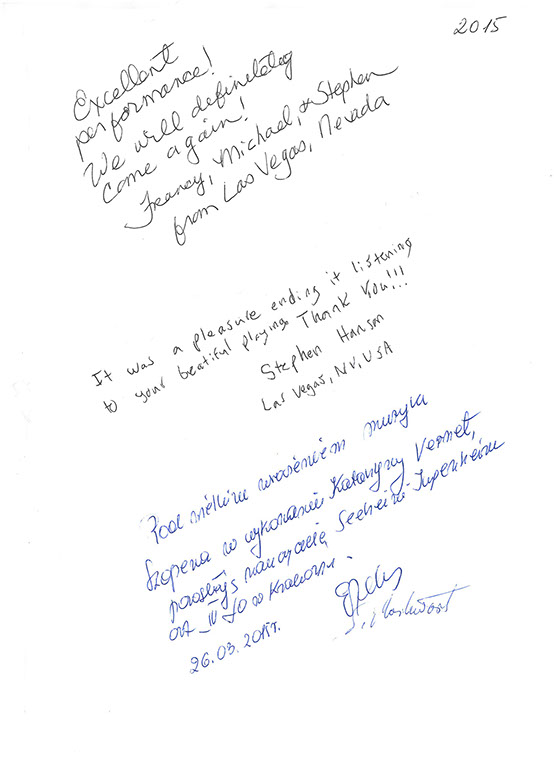 2015
Excellent
performance!
We will definitely
come again!
Francy, Michael, & Stephen
from Las Vegas, Nevada
It was a pleasure ending it listening
to your beatiful playing. Thank You!!!
Stephen Hanson
Las Vegas, NV, USA
Pod wielkim wrażeniem muzyka
Szopena w wykonaniu Katarzyny Vernet,
w Krakowie.
26.03.2015r.